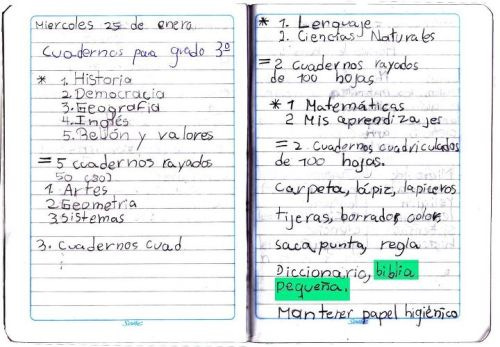 Miercoles 25 de enero
Cuadernos para grado 3º
* 1. Historia
2. Democracia
3. Geografia
4. Inglés
5. Relón y valores
= 5 cuadernos rayados
50 (80)
1. Artes
2. Geometria
3. Sistemas
3. Cuadernos Cuad
* 1. Lenguaje
2. Ciencias Naturales
= 2 cuadernos rayados
de 100 hojas
* 1 Matemáticas
2 Mis aprendizajes
= 2 Cuadernos cuadriculados
de 100 hojas.
Carpeta, lápiz, lapiceros
tijeras, borrador, color,
sacapunta, regla
Diccionario, biblia
pequeña.
Mantener papel higiénico